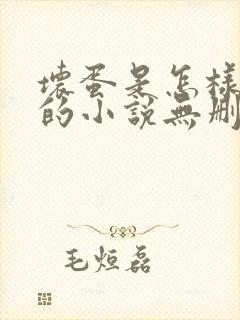 壞蛋是怎樣
的小說無刪
毛烜磊